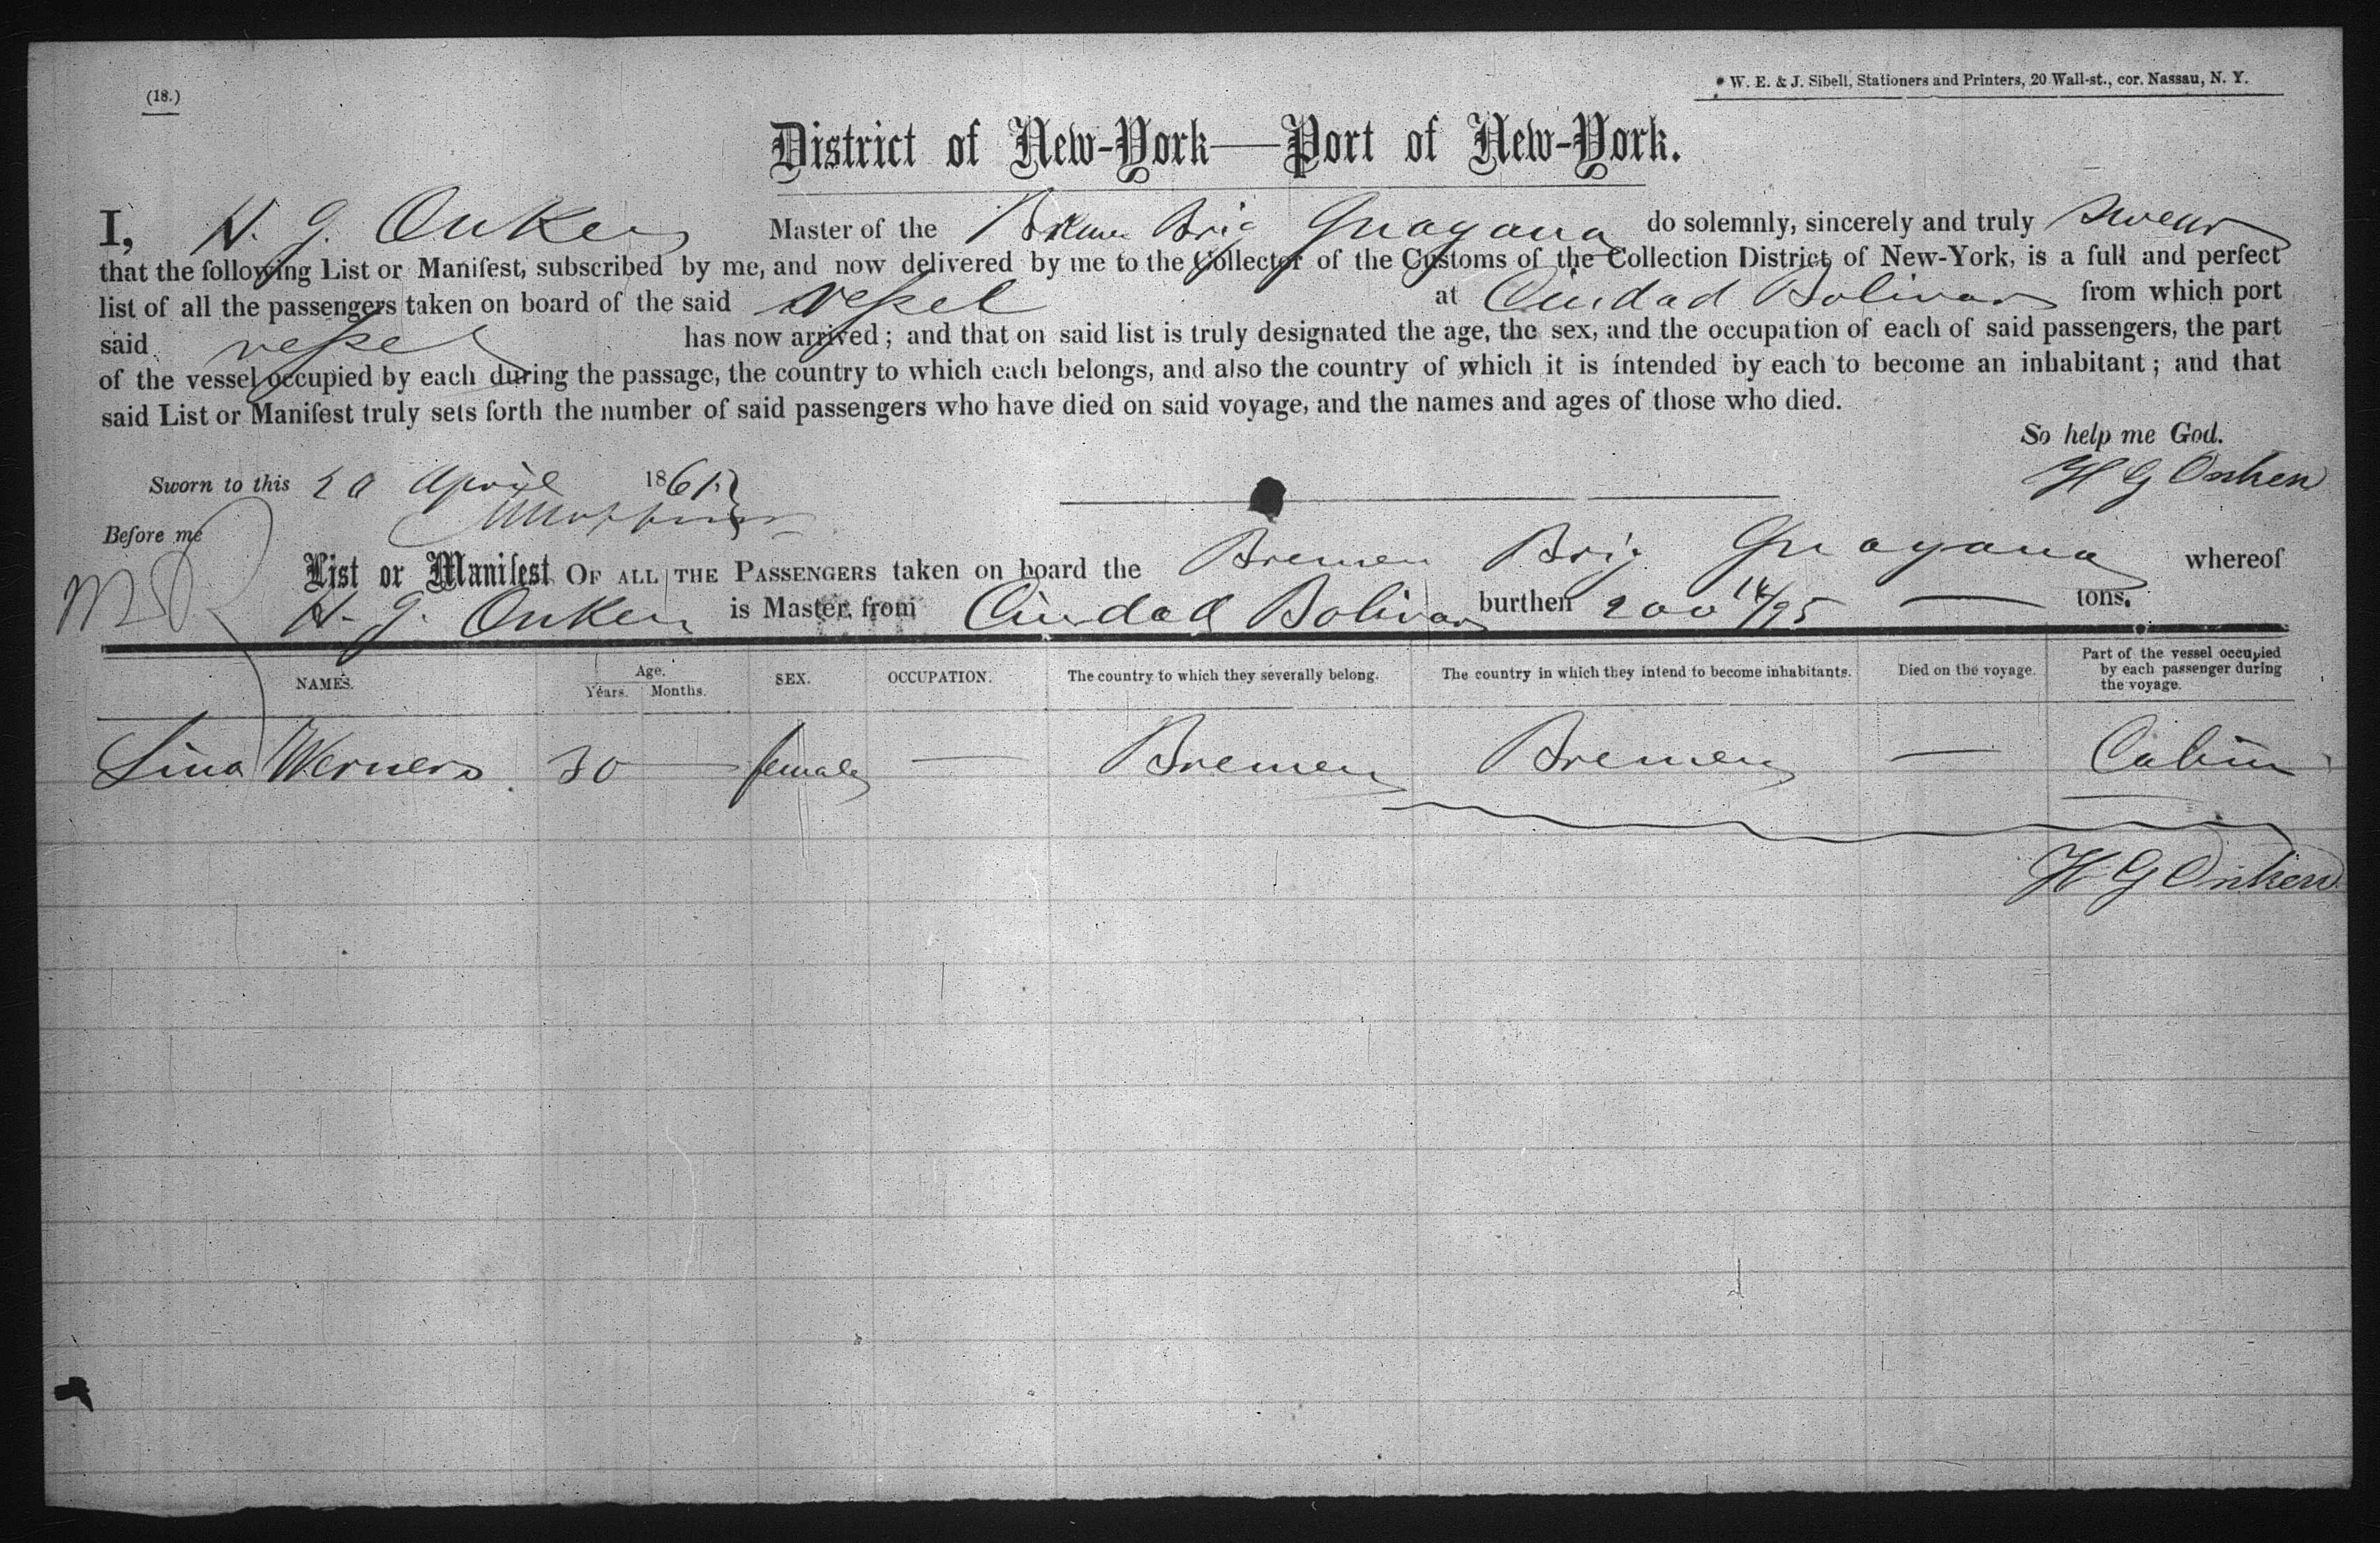 (18.)
W. E. & J. Sibell, Stationers and Printers, 20 Wall-st., cor. Nassau, N. Y.
District of New-York—Port of New-York.
I, H. G. Onken Master of the Bremen Brig Guayana do solemnly, sincerely and truly swear
that the following List or Manifest, subscribed by me, and now delivered by me to the Collector of the Customs of the Collection District of New-York, is a full and perfect
list of all the passengers taken on board of the said vessel at Ciudad Bolivar from which port
said vessel has now arrived; and that on said list is truly designated the age, the sex, and the occupation of each of said passengers, the part
of the vessel occupied by each during the passage, the country to which each belongs, and also the country of which it is intended by each to become an inhabitant; and that
said List or Manifest truly sets forth the number of said passengers who have died on said voyage, and the names and ages of those who died.
So help me God.
Sworn to this 20 April 1861
H G Onken
Before me
List or Manifest OF ALL THE PASSENGERS taken on board the Bremen Brig Guayana whereof
H. G. Onken is Master, from Ciudad Bolivar burthen 200 14/95 — tons.
NAMES. Age. Years. Months. SEX. OCCUPATION. The country to which they severally belong. The country in which they intend to become inhabitants. Died on the voyage. Part of the vessel occupied by each passenger during the voyage.
Lina Werners 30 — female — Bremen Bremen — Cabin
H G Onken